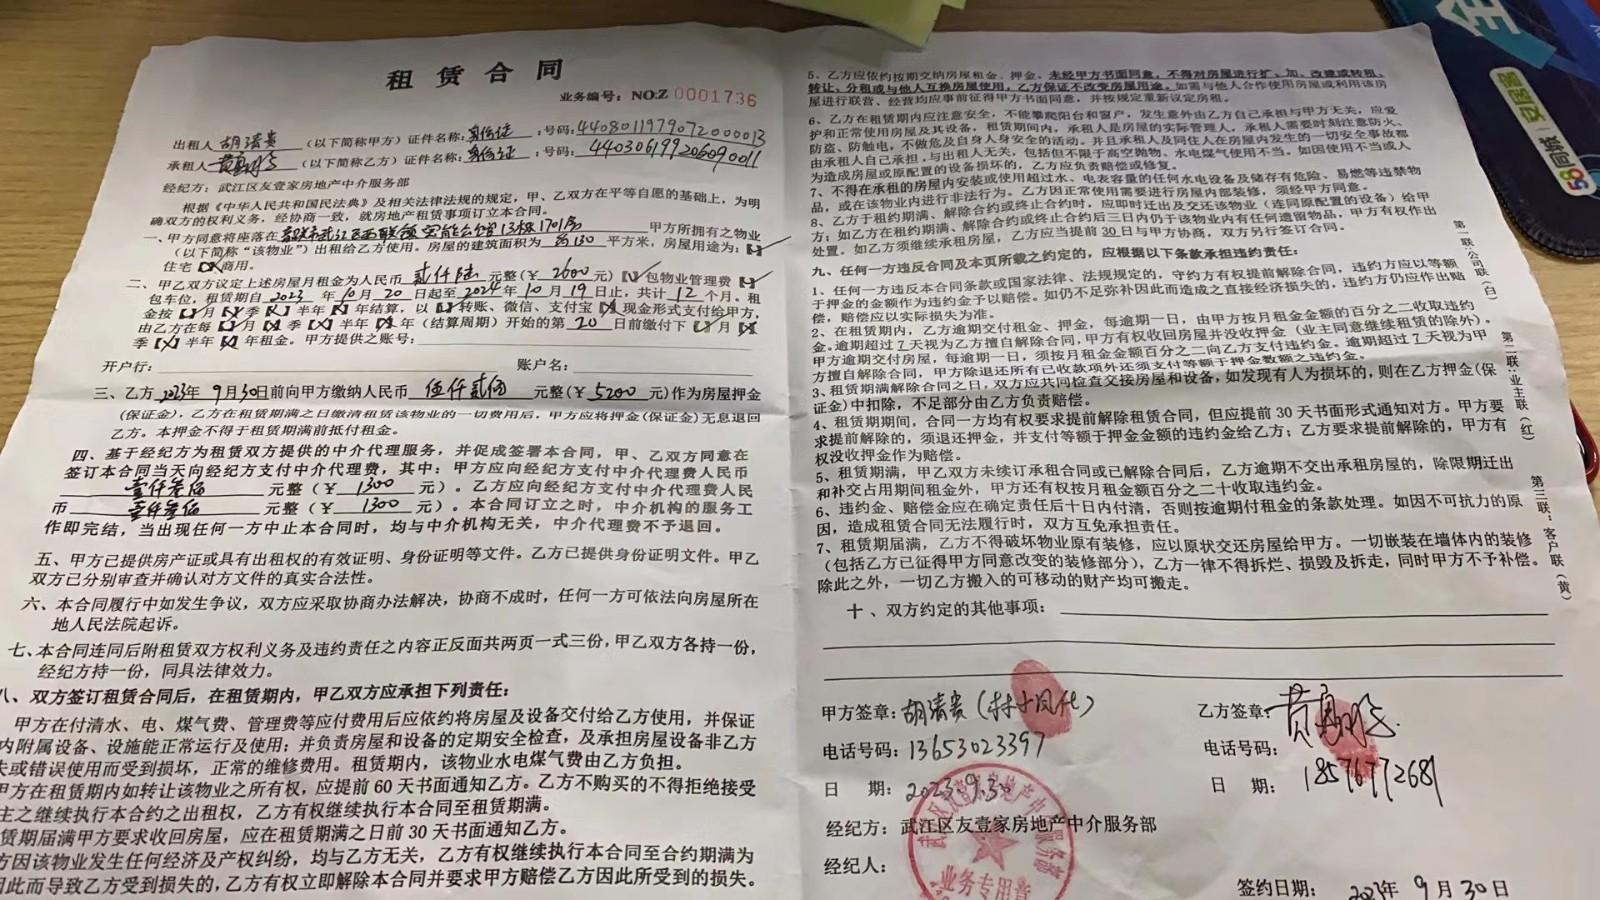 租赁合同
业务编号：NO:Z 0001736
出租人 胡清贵 （以下简称甲方）证件名称：身份证 ；号码：440801197907200013
承租人 （以下简称乙方）证件名称：身份证 ；号码：440306199206090011
经纪方：武江区友壹家房地产中介服务部
根据《中华人民共和国民法典》及相关法律法规的规定，甲、乙双方在平等自愿的基础上，为明
确双方的权利义务，经协商一致，就房地产租赁事项订立本合同。
一、甲方同意将座落在 13栋1701房 甲方所拥有之物业
（以下简称“该物业”）出租给乙方使用。房屋的建筑面积为 约130 平方米，房屋用途为：【✓】
住宅【✗】商用。
二、甲乙双方议定上述房屋月租金为人民币 贰仟陆 元整（￥ 2600 元）【✓】包物业管理费【✓】
包车位，租赁期自 2023 年 10 月 20 日起至 2024 年 10 月 19 日止，共计 12 个月。租
金按【 】月【 】季【 】半年【 】年结算，以【 】转账、微信、支付宝【 】现金形式支付给甲方，
由乙方在每【 】月【 】季【 】半年【 】年（结算周期）开始的第 20 日前缴付下【 】月【 】
季【 】半年【 】年租金。甲方提供之账号：
开户行： 账户名：
三、乙方 2023年 9月30日前向甲方缴纳人民币 伍仟贰佰 元整（￥ 5200 元）作为房屋押金
（保证金），乙方在租赁期满之日缴清租赁该物业的一切费用后，甲方应将押金（保证金）无息退回
乙方。本押金不得于租赁期满前抵付租金。
四、基于经纪方为租赁双方提供的中介代理服务，并促成签署本合同，甲、乙双方同意在
签订本合同当天向经纪方支付中介代理费，其中：甲方应向经纪方支付中介代理费人民币
壹仟叁佰 元整（￥ 1300 元）。乙方应向经纪方支付中介代理费人民
币 壹仟叁佰 元整（￥ 1300 元）。本合同订立之时，中介机构的服务工
作即完结，当出现任何一方中止本合同时，均与中介机构无关，中介代理费不予退回。
五、甲方已提供房产证或具有出租权的有效证明、身份证明等文件。乙方已提供身份证明文件。甲乙
双方已分别审查并确认对方文件的真实合法性。
六、本合同履行中如发生争议，双方应采取协商办法解决，协商不成时，任何一方可依法向房屋所在
地人民法院起诉。
七、本合同连同后附租赁双方权利义务及违约责任之内容正反面共两页一式三份，甲乙双方各持一份，
经纪方持一份，同具法律效力。
八、双方签订租赁合同后，在租赁期内，甲乙双方应承担下列责任：
甲方在付清水、电、煤气费、管理费等应付费用后应依约将房屋及设备交付给乙方使用，并保证
内附属设备、设施能正常运行及使用；并负责房屋和设备的定期安全检查，及承担房屋设备非乙方
失或错误使用而受到损坏，正常的维修费用。租赁期内，该物业水电煤气费由乙方负担。
甲方在租赁期内如转让该物业之所有权，应提前60天书面通知乙方。乙方不购买的不得拒绝接受
主之继续执行本合约之出租权，乙方有权继续执行本合同至租赁期满。
赁期届满甲方要求收回房屋，应在租赁期满之日前30天书面通知乙方。
方因该物业发生任何经济及产权纠纷，均与乙方无关，乙方有权继续执行本合同至合约期满为
因此而导致乙方受到损失的，乙方有权立即解除本合同并要求甲方赔偿乙方因此所受到的损失。
5、乙方应依约按期交纳房屋租金、押金。未经甲方书面同意，不得对房屋进行扩、加、改建或转租、
转让、分租或与他人互换房屋使用，乙方保证不改变房屋用途。如需与他人合作使用房屋或利用该房
屋进行联营、经营均应事前征得甲方书面同意，并按规定重新议定房租。
6、乙方在租赁期内应注意安全，不能攀爬阳台和窗户，发生意外由乙方自己承担与甲方无关，应爱
护和正常使用房屋及其设备，租赁期间内，承租人是房屋的实际管理人，承租人需要时刻注意防火、
防盗、防触电，不做危及自身人身安全的活动。并且承租人及同住人在房屋内发生的一切安全事故都
由承租人自己承担，与出租人无关，包括但不限于高空抛物、水电煤气使用不当。如因使用不当或人
为造成房屋或原配置的设备损坏的，乙方应负责赔偿或修复。
7、不得在承租的房屋内安装或使用超过水、电表容量的任何水电设备及储存有危险、易燃等违禁物
品，或在该物业内进行非法行为。乙方因正常使用需要进行房屋内部装修，须经甲方同意。
8、乙方于租约期满、解除合约或终止合约时，应即时迁出及交还该物业（连同原配置的设备）给甲
方；如乙方在租约期满、解除合约或终止合约后三日内仍于该物业内有任何遗留物品，甲方有权作出
处置。如乙方须继续承租房屋，乙方应当提前30日与甲方协商，双方另行签订合同。
九、任何一方违反合同及本页所载之约定的，应根据以下条款承担违约责任：
1、任何一方违反本合同条款或国家法律、法规规定的，守约方有权提前解除合同，违约方应以等额
于押金的金额作为违约金予以赔偿。如仍不足弥补因此而造成之直接经济损失的，违约方仍应作出赔
偿，赔偿应以实际损失为准。
2、在租赁期内，乙方逾期交付租金、押金，每逾期一日，由甲方按月租金金额的百分之二收取违约
金。逾期超过7天视为乙方擅自解除合同，甲方有权收回房屋并没收押金（业主同意继续租赁的除外）。
甲方逾期交付房屋，每逾期一日，须按月租金金额百分之二向乙方支付违约金。逾期超过7天视为甲
方擅自解除合同，甲方除退还所有已收款项外还须支付等额于押金数额之违约金。
3、租赁期满解除合同之日，双方应共同检查交接房屋和设备，如发现有人为损坏的，则在乙方押金（保
证金）中扣除，不足部分由乙方负责赔偿。
4、租赁期期间，合同一方均有权要求提前解除租赁合同，但应提前30天书面形式通知对方。甲方要
求提前解除的，须退还押金，并支付等额于押金金额的违约金给乙方；乙方要求提前解除的，甲方有
权没收押金作为赔偿。
5、租赁期满，甲乙双方未续订承租合同或已解除合同后，乙方逾期不交出承租房屋的，除限期迁出
和补交占用期间租金外，甲方还有权按月租金额百分之二十收取违约金。
6、违约金、赔偿金应在确定责任后十日内付清，否则按逾期付租金的条款处理。如因不可抗力的原
因，造成租赁合同无法履行时，双方互免承担责任。
7、租赁期届满，乙方不得破坏物业原有装修，应以原状交还房屋给甲方。一切嵌装在墙体内的装修
（包括乙方已征得甲方同意改变的装修部分），乙方一律不得拆烂、损毁及拆走，同时甲方不予补偿。
除此之外，一切乙方搬入的可移动的财产均可搬走。
十、双方约定的其他事项：
甲方签章：胡清贵（林小凤代）
乙方签章：
电话号码：13653023397
电话号码：18576772681
日 期：2023.9.30
日 期：
经纪方：武江区友壹家房地产中介服务部
经纪人：
业务专用章
签约日期：2023年 9月30日
第一联：公司联（白）
第二联：业主联（红）
第三联：客户联（黄）
58同城 安居客
全